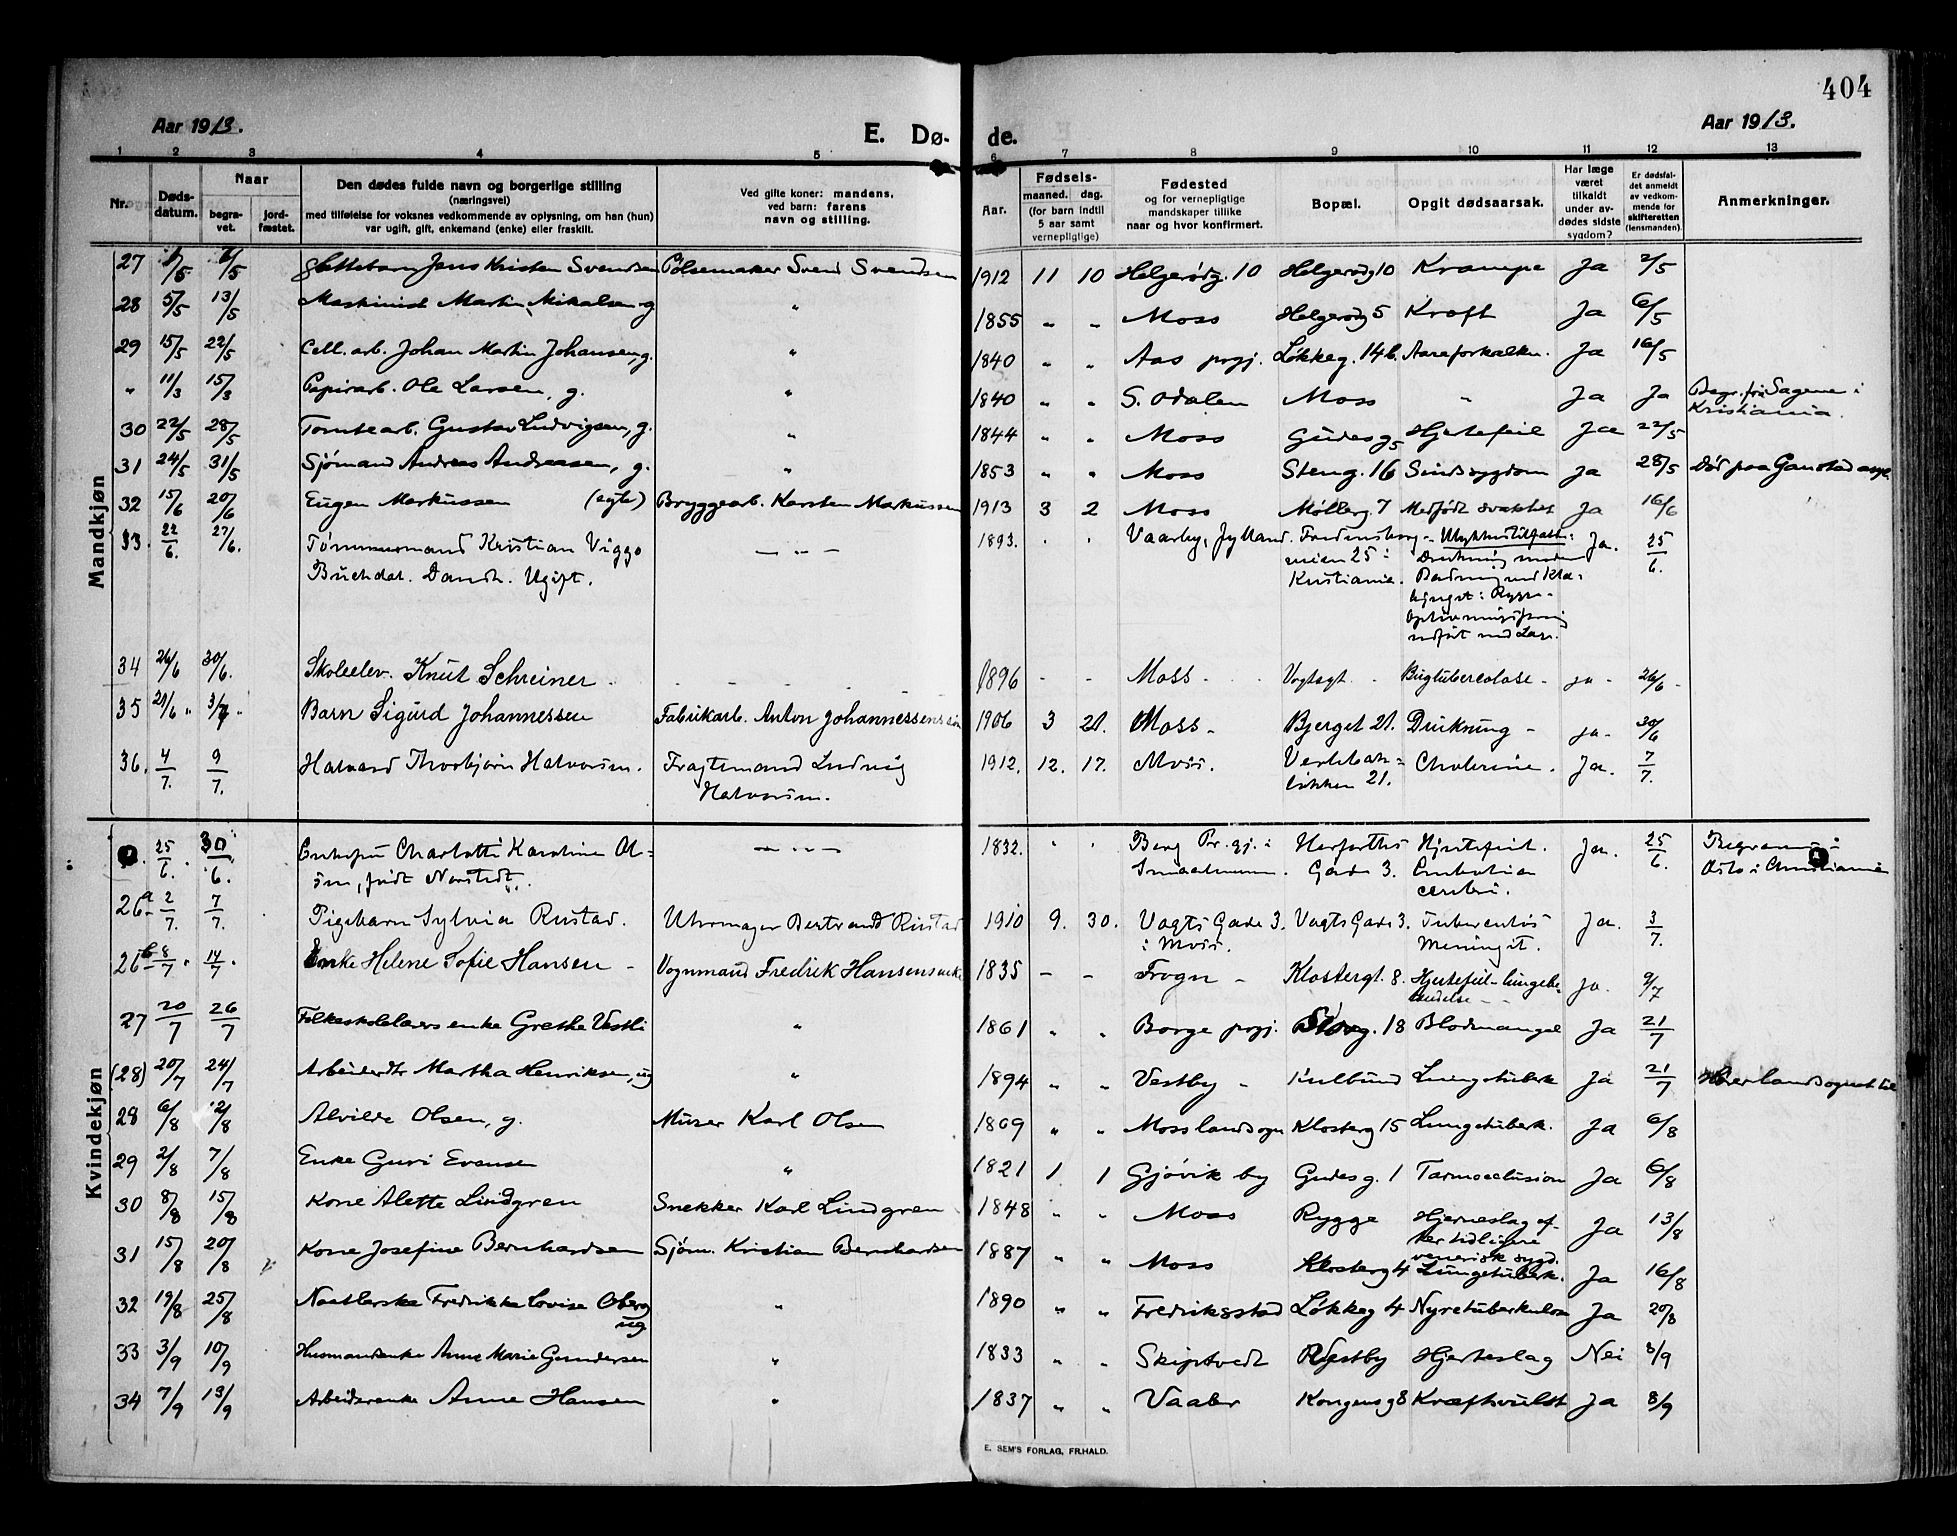 404
Aar 1913.
E. Dø- de.
Aar 1913.
1 2 3 4 5 6 7 8 9 10 11 12 13
Nr. Døds-datum. Naar begra-vet. jord-fæstet. Den dødes fulde navn og borgerlige stilling (næringsvei) med tilføielse for voksnes vedkommende av oplysning, om han (hun) var ugift, gift, enkemand (enke) eller fraskilt. Ved gifte koner: mandens, ved barn: farens navn og stilling. Aar. Fødsels- maaned. dag. (for barn indtil 5 aar samt vernepligtige) Fødested og for vernepligtige mandskaper tillike naar og hvor konfirmert. Bopæl. Opgit dødsaarsak. Har læge været tilkaldt under av-dødes sidste sygdom? Er dødsfal-det anmeldt av vedkom-mende for skifteretten (lensmanden). Anmerkninger.
Mandkjøn
27 /5 /5 Jens Kristen Svendsen Pølsemaker Svend Svendsen 1912 11 10 Helgerødg. 10 Helgerødg 10 Krampe Ja 2/5
28 5/5 13/5 Maskinist Martin Mikalsen g. " 1855 " " Moss Helgerødg 5 Kræft Ja 6/5
29 15/5 22/5 Cell. arb. Johan Martin Johansen, g. " 1840 " " Aas prgj. Løkkeg. 14b. Aareforkalkn. Ja 16/5
" 11/3 15/3 Papirarb. Ole Larsen, g. " 1840 " " S. Odalen Moss " Ja Ja Begr. fra Sagene i
Kristiania.
30 22/5 28/5 Tomtearb. Gustav Ludvigsen, g. " 1844 " " Moss Gudesg 5 Hjertefeil Ja 22/5
31 24/5 31/5 Sjømand Andreas Andreasen, g. " 1853 " " Moss Steng. 16 Sindssygdom Ja 28/5 Død paa Gaustad asyl
32 15/6 20/6 Eugen Markussen (egte) Bryggearb. Karsten Markussen 1913 3 2 Moss Møllerg 7 Medfødt svakhet Ja 16/6
33. 22/6. 27/6. Tømmermand Kristian Viggo — " — 1893. " " Vaarby, Jylland. Fredensborg- Ulykkestilfælde: Ja. 25/6.
Buchdal. Dansk. Ugift. veien 25 i Drukning under
Kristiania. Badning ved


34 26/6 30/6. Skoleelev. Knut Schreiner. - - - 1896 - - Moss - Vogtsgt. Bugtuberculose - ja - 26/6 -
35 29/6 " 3/7 " Barn Sigurd Johannessen Fabrikarb. Anton Johannessens søn 1906 3 21. Moss - Bjerget 21. Drukning - ja - 30/6
36. 4/7. 9/7. Halvard Thorbjørn Halvorsen. Fragtemand Ludvig 1912. 12. 17. Moss. Verlebak- Cholerine. Ja. 7/7.
Halvorsen. løkken 21.
Kvindekjøn
25/6. 30/6. Enkefru Charlotte Karoline Ol- — " — 1832. " " Berg Pr. gj. i Herfarths Hjertefeil. Ja. 25/6. Begravet i
sen, født Norstedt. Smaalenene. Gade 3. Embolia Oslo i Christiania
cerebri.
26a 2/7. 7/7. Pigebarn Sylvia Rustad. Uhrmager Bertrand Rustad 1910 9. 30. Vogts Gade 3. Vogts Gade 3. Tuberculøs Ja. 3/7.
i Moss. Meningit.
26b 8/7 " 14/7 " Enke Helene Sofie Hansen - Vognmand Fredrik Hansens enke 1835 - - Frogn - Klostergt. 8. Hjertefeil - lungebe-
tændelse - - ja. 9/7
27 20/7 26/7 Folkeskolelærers enke Grethe Vestli " 1861 " " Borge prgj. 18 Blodmangel Ja 21/7
(28) 20/7 24/7 Arbeiderdtr Martha Henriksen, ug " 1894 " " Vestby - Kulbund Lungetuberk Ja 21/7 Hører landsognet til
28 6/8 12/8 Alvilde Olsen, g. Murer Karl Olsen 1869 " " Moss landsogn Klosterg 15 Lungetuberk. Ja 6/8
29 2/8 7/8 Enke Guri Evensen " 1821 1 1 Gjøvik by Gudesg. 1 Tarmocclusion Ja 6/8
30 8/8 15/8 Kone Alette Lindgren Snekker Karl Lindgren 1848 " " Moss Rygge Hjerneslag ef- Ja 13/8
ter tidligere
venerisk sygd.
31 15/8 20/8 Kone Josefine Bernhardsen Sjøm. Kristian Bernhardsen 1887 " " Moss Klosterg 4 Lungetuberk. Ja 16/8
32 19/8 25/8 Naatlerske Fredrikke Lovise Oberg " 1890 " " Fredriksstad Løkkeg 4 Nyretuberkulose Ja 20/8
ug
33 3/9 10/9 Husmandsenke Anne Marie Gundersen " 1833 " " Skiptvedt Vestby Hjerteslag Nei 3/9
34 7/9 13/9 Arbeiderenke Anne Hansen " 1837 " " Vaaler Kongensg 8 Kræfthvulst Ja 8/9
E. SEM'S FORLAG, FR.HALD.